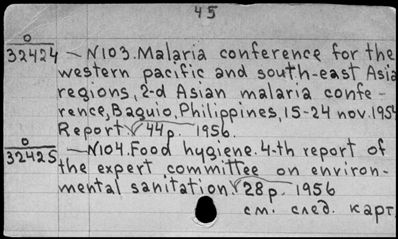 45
0
32424 — N103. Malaria conference for the
western pacific and south-east Asia
regions, 2-d Asian malaria confe-
rence, Baguio, Philippines, 15-24 nov. 1954
Report. 44p. 1956.
0
32425 — N104. Food hygiene. 4-th report of
the expert committee on environ-
mental sanitation. 28p. 1956
см. след. карт.